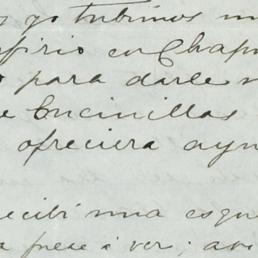 yo tubimos un
firio en Chapu
para darle
e Encinillas
ofreciera ayu
ecibi una esque
a frese i ver; avi